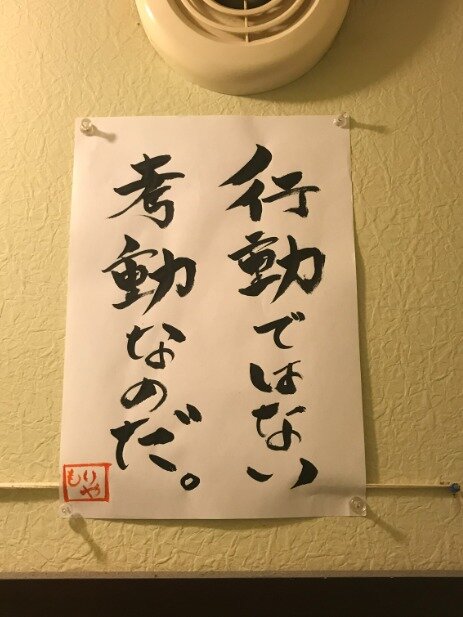 行動ではない
考動なのだ。
もりや